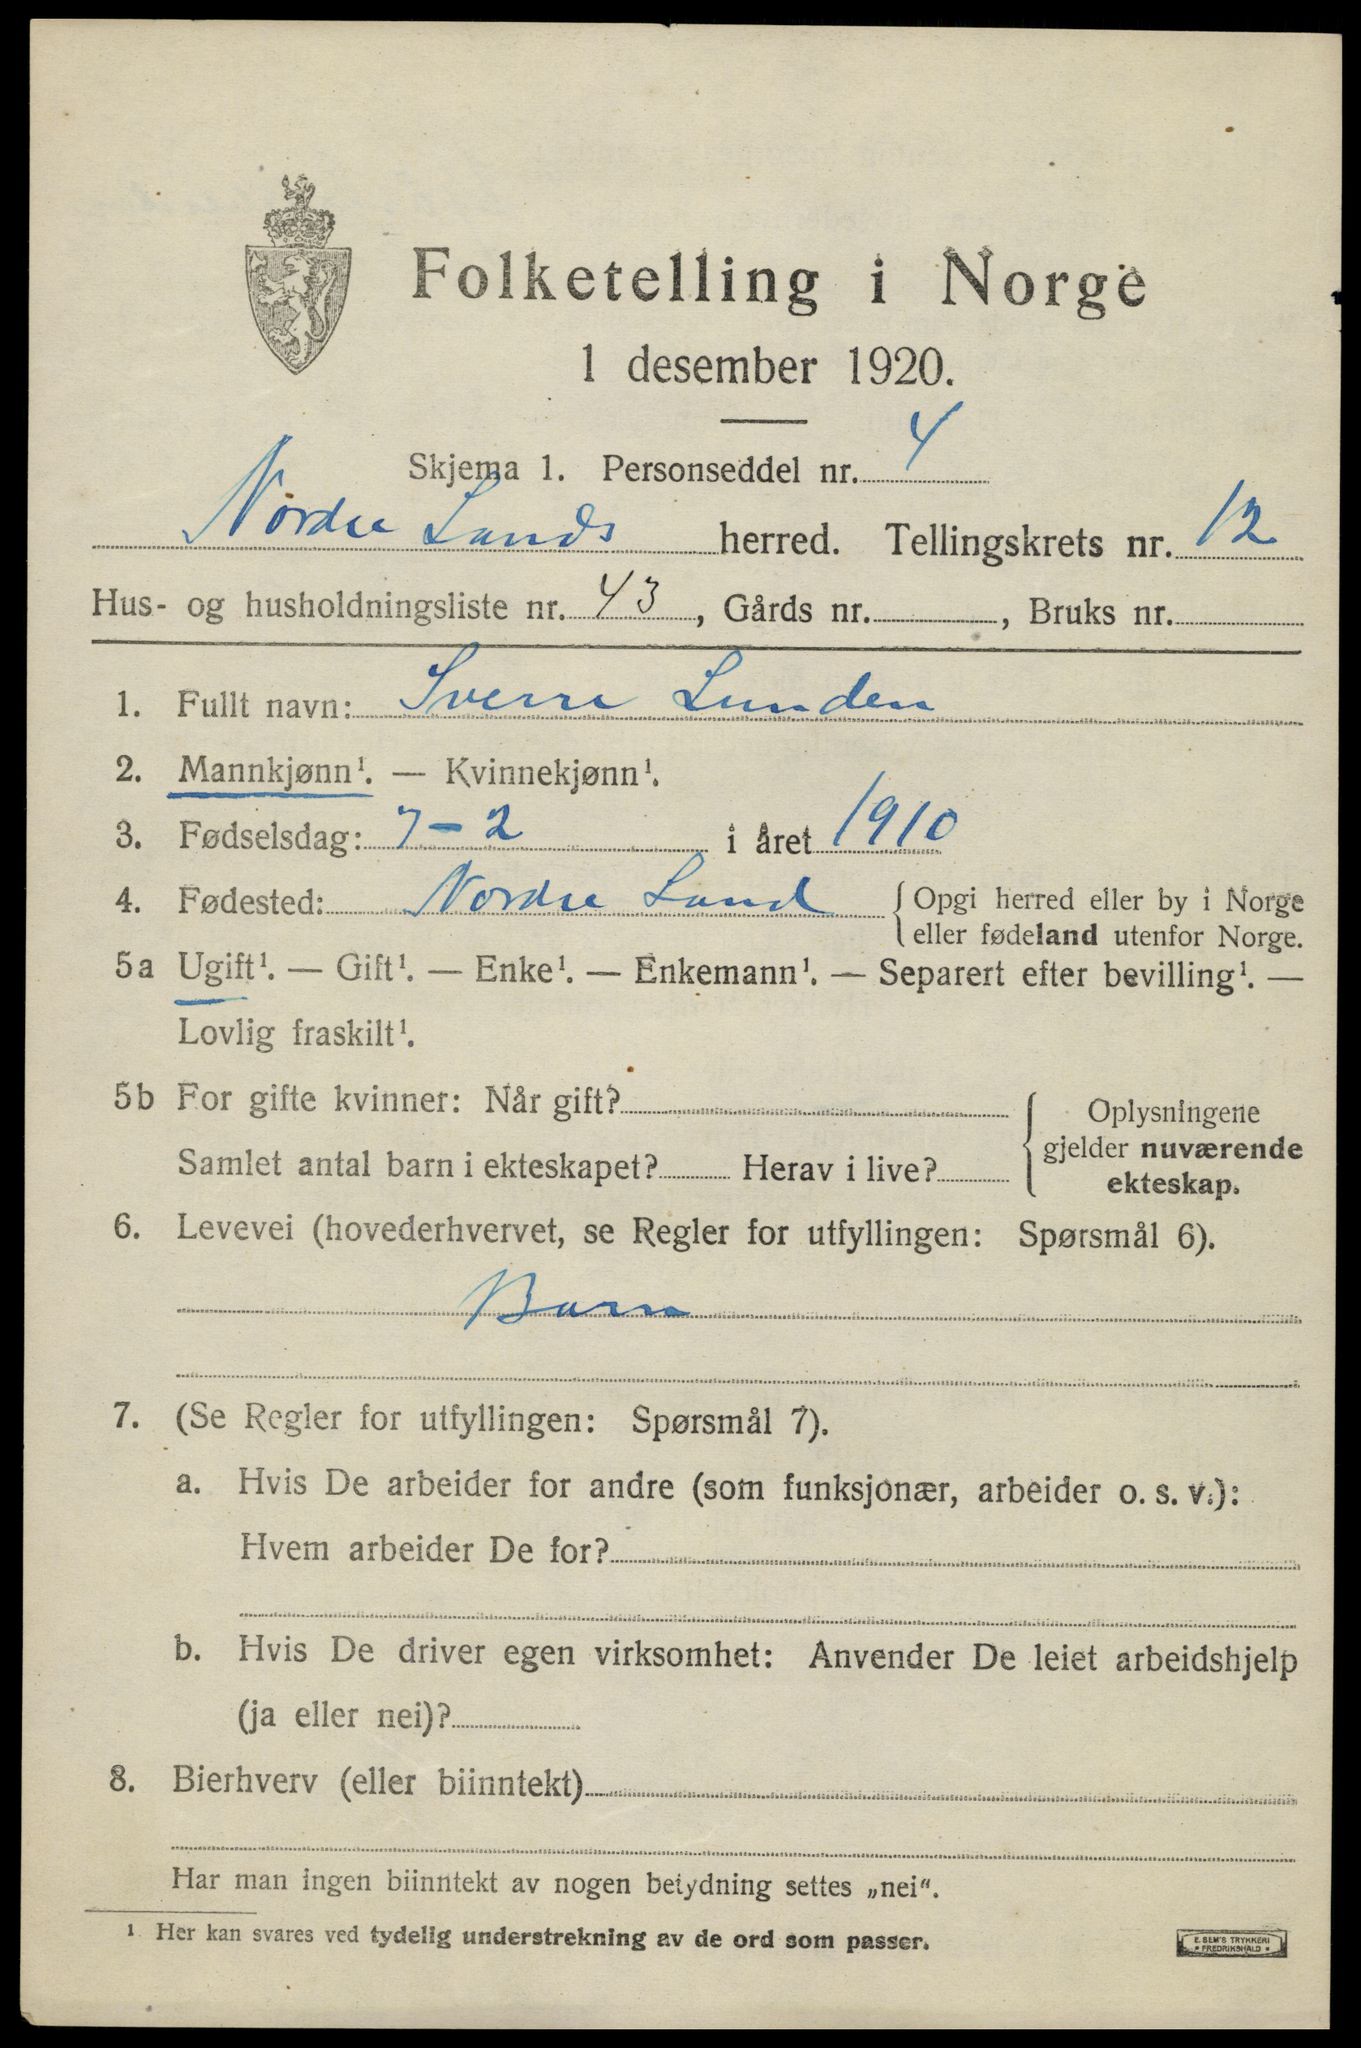 Folketelling i Norge
1 desember 1920.
Skjema 1. Personseddel nr. 4
Nordre Lands herred. Tellingskrets nr. 12
Hus- og husholdningsliste nr. 43, Gårds nr. , Bruks nr.
1. Fullt navn: Sverre Lunden
2. Mannkjønn¹. — Kvinnekjønn¹.
3. Fødselsdag: 7-2 i året 1910
4. Fødested: Nordre Land { Opgi herred eller by i Norge
eller fødeland utenfor Norge.
5a Ugift¹. — Gift¹. — Enke¹. — Enkemann¹. — Separert efter bevilling¹. —
Lovlig fraskilt¹.
5b For gifte kvinner: Når gift? { Oplysningene
gjelder nuværende
ekteskap.
Samlet antal barn i ekteskapet? Herav i live?
6. Levevei (hovederhvervet, se Regler for utfyllingen: Spørsmål 6).
Barn
7. (Se Regler for utfyllingen: Spørsmål 7).
a. Hvis De arbeider for andre (som funksjonær, arbeider o. s. v.):
Hvem arbeider De for?
b. Hvis De driver egen virksomhet: Anvender De leiet arbeidshjelp
(ja eller nei)?
8. Bierhverv (eller biinntekt)
Har man ingen biinntekt av nogen betydning settes „nei“.
¹ Her kan svares ved tydelig understrekning av de ord som passer.
E. SEM'S TRYKKERI
* FREDRIKSHALD *